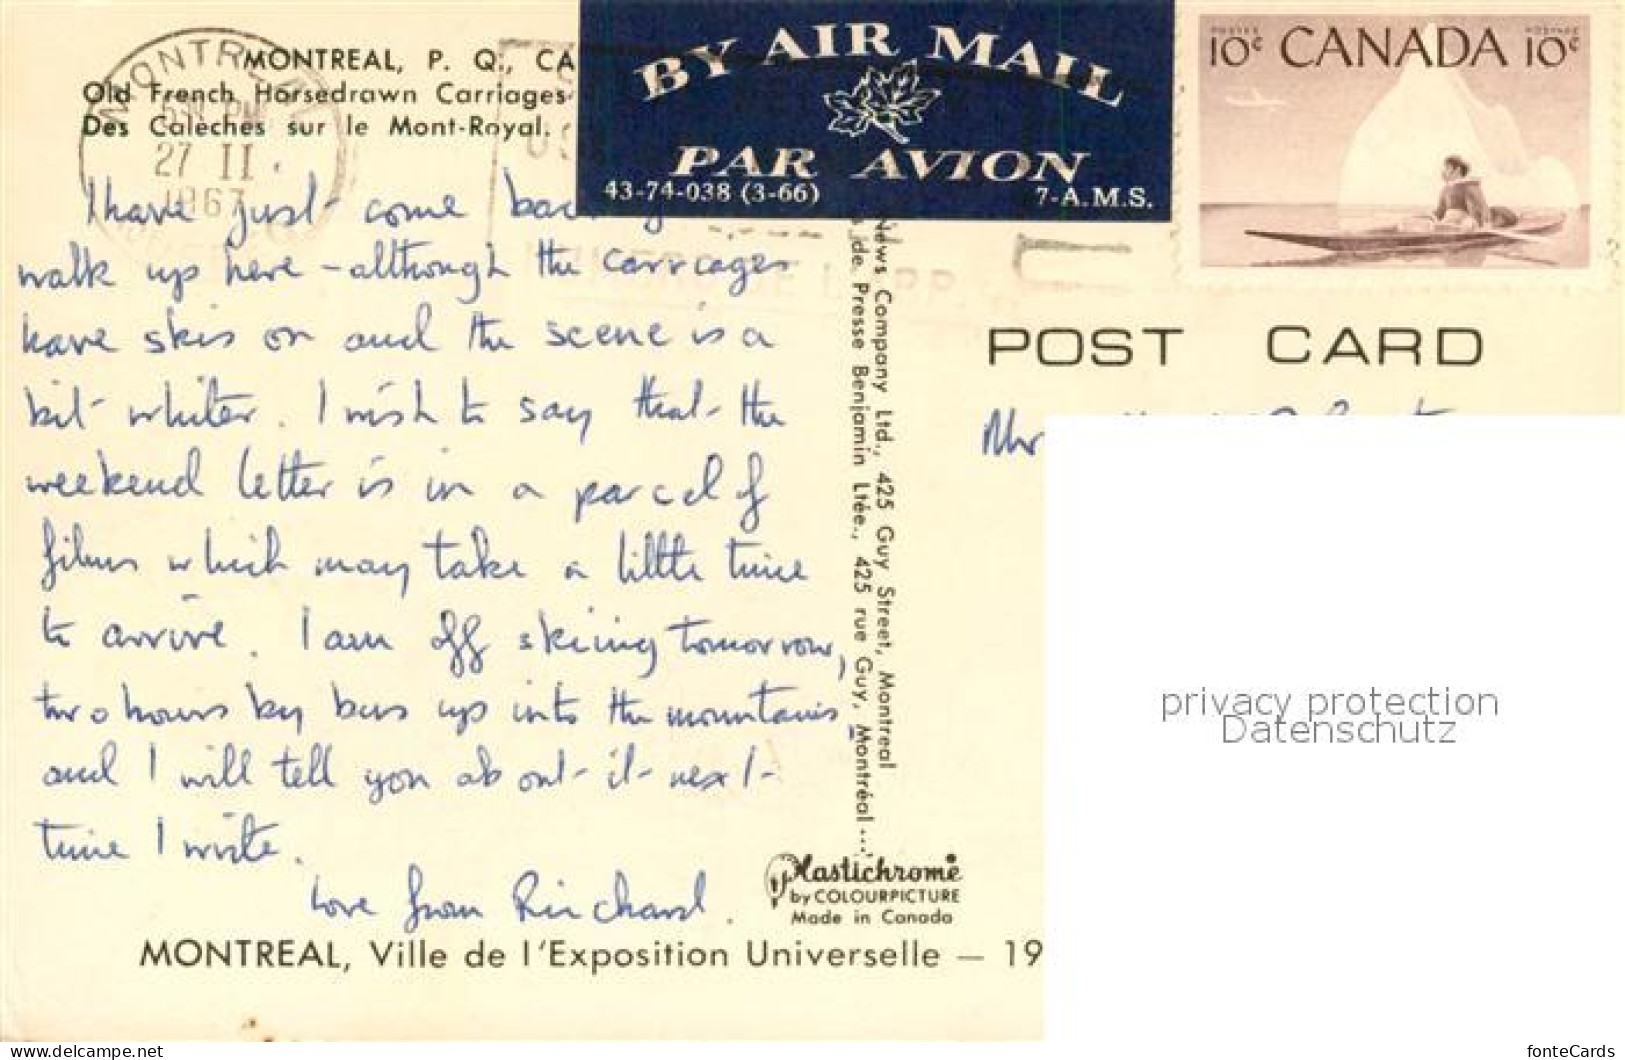 MONTREAL, P. Q., CA
Old French Horsedrawn Carriages
Des Caleches sur le Mont-Royal.
MONTR
PM
27 II
1967
BY AIR MAIL
PAR AVION
43-74-038 (3-66) 7-A.M.S.
POSTES POSTAGE
10¢ CANADA 10¢
I have just come bac
walk up here - although the carriages
have skis on and the scene is a
bit whiter. I wish to say that the
weekend letter is in a parcel of
films which may take a little time
to arrive. I am off skiing tomorrow,
two hours by bus up into the mountains
and I will tell you about it next
time I write.
Love from Richard.
News Company Ltd., 425 Guy Street, Montreal
de. Presse Benjamin Ltée., 425 rue Guy, Montréal ...
POST CARD
Mr
privacy protection
Datenschutz
Plastichrome
by COLOURPICTURE
Made in Canada
MONTREAL, Ville de l'Exposition Universelle — 19
delcampe.net
fonteCards